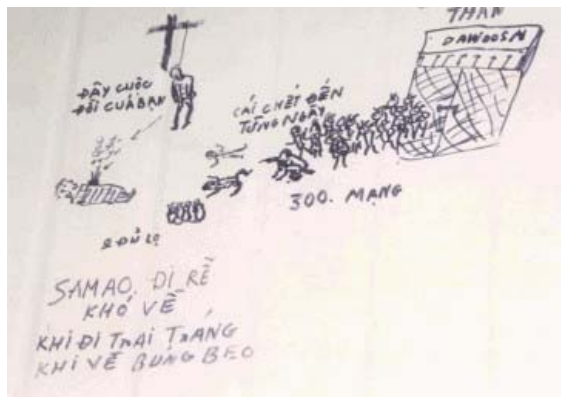 THAN
DAWOOSN
ĐÂY CUỘC
ĐỜI CUẢ BẠN
CÁI CHẾT ĐẾN
TỪNG NGÀY
300. MẠNG
ĐỦ
SAMAO. ĐI_RỄ
KHÓ VỀ
KHI ĐI TRAI TRÁNG
KHI VỀ BỦNG BEO